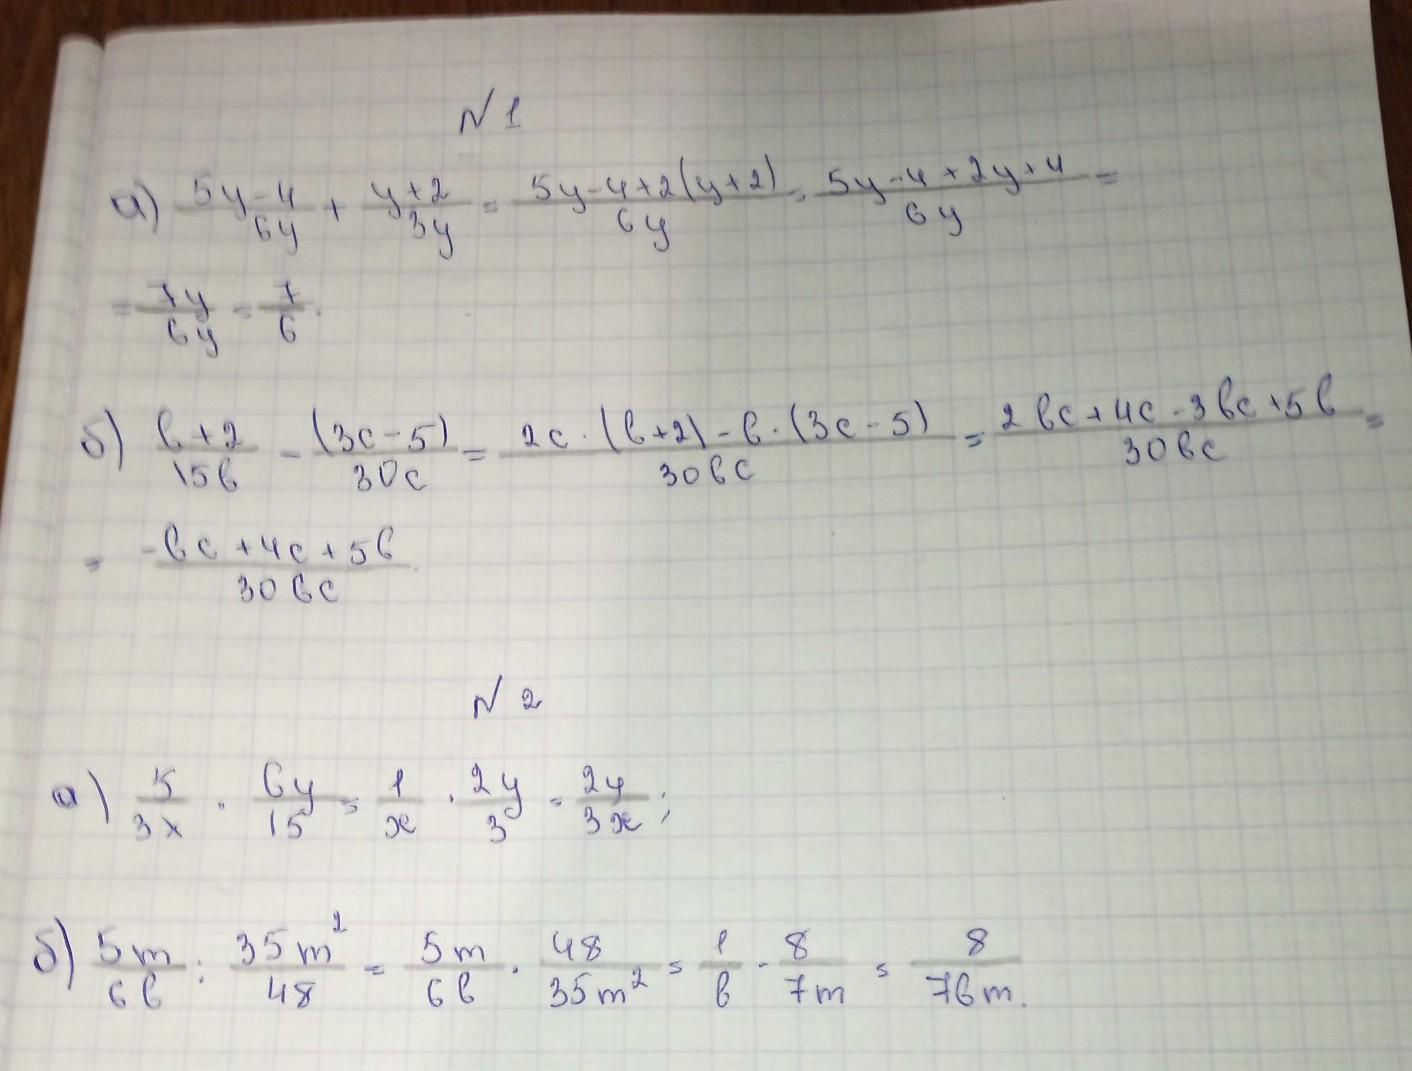 № 1
а) (5y-4)/(6y) + (y+2)/(3y) = (5y-4+2(y+2))/(6y) = (5y-4+2y+4)/(6y) =
= (7y)/(6y) = 7/6.
б) (b+2)/(15b) - (3c-5)/(30c) = (2c·(b+2)-b·(3c-5))/(30bc) = (2bc+4c-3bc+5b)/(30bc) =
= (-bc+4c+5b)/(30bc).
№ 2
а) 5/(3x) · (6y)/15 = 1/x · (2y)/3 = (2y)/(3x);
б) (5m)/(6b) : (35m²)/48 = (5m)/(6b) · 48/(35m²) = 1/b · 8/(7m) = 8/(7bm).